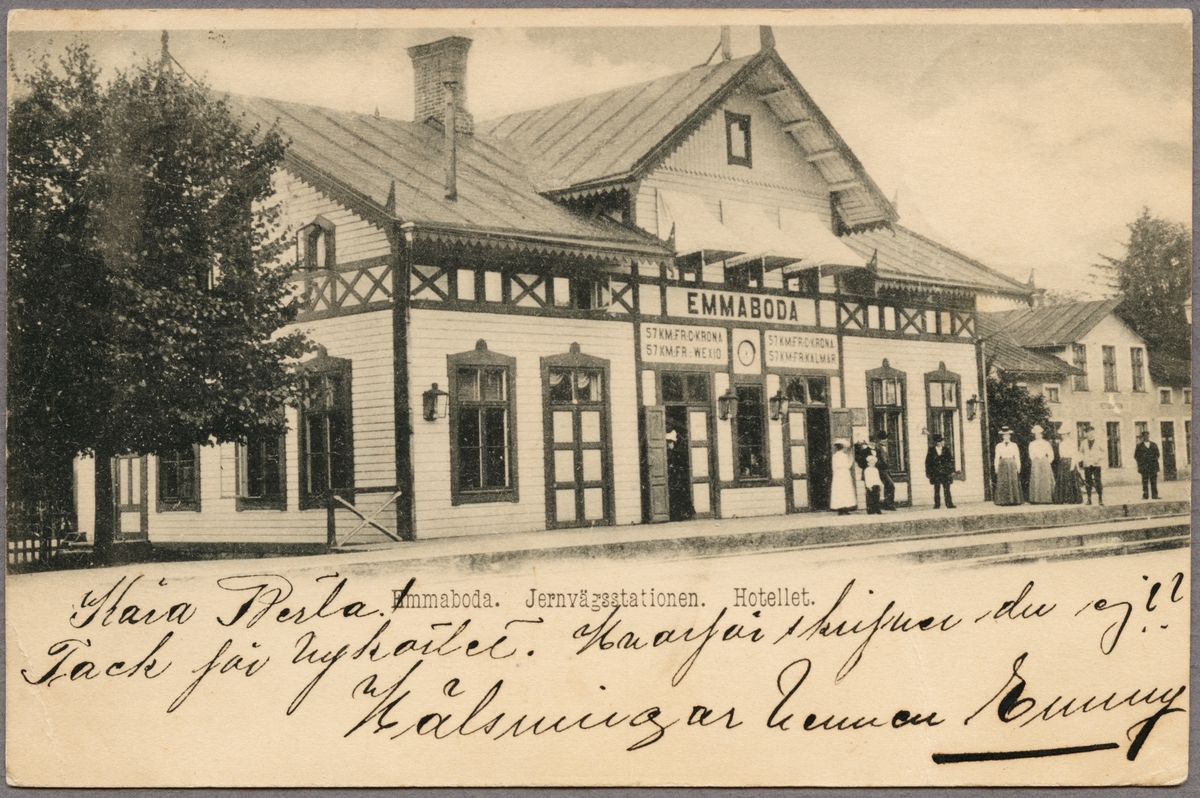 EMMABODA
57 KM. FR. C-KRONA
57 KM. FR. WEXIÖ
57 KM. FR. C-KRONA
57 KM. FR. KALMAR
Emmaboda. Jernvägsstationen. Hotellet.
Kära Berta!
Tack för vykortet. Hvarför skrifver du ej??
Hälsningar vännen Emmy